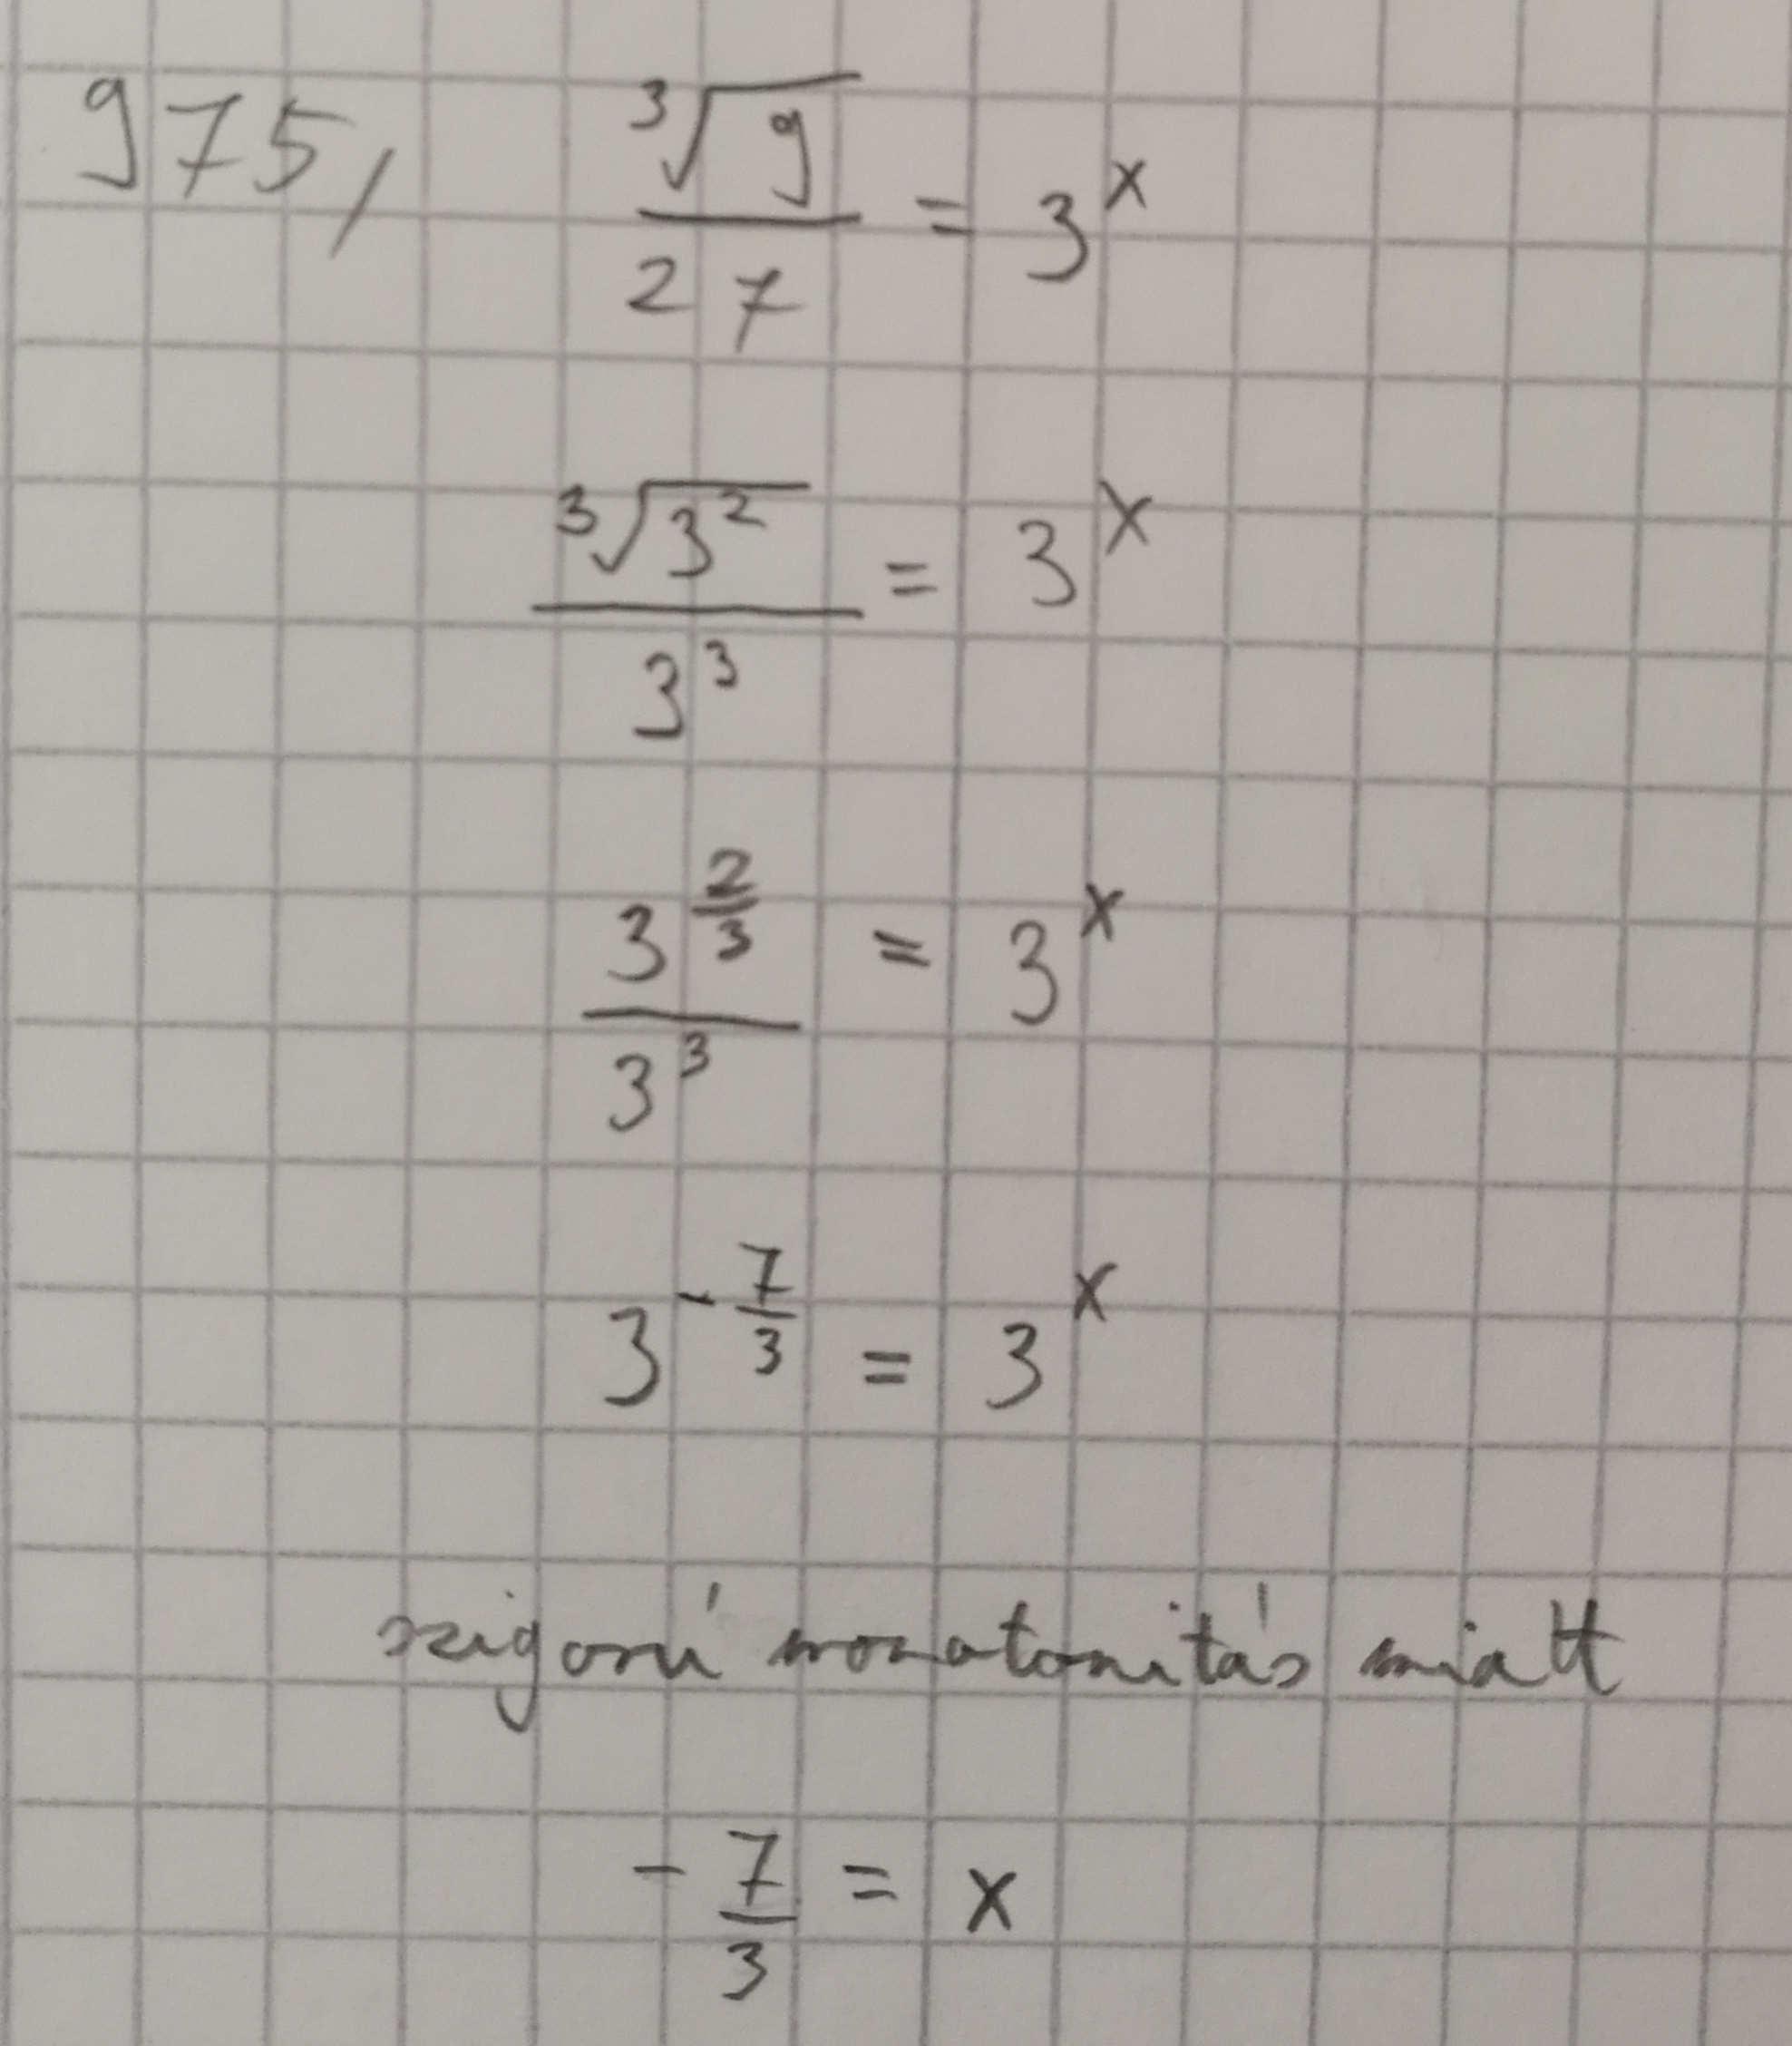 975, ∛9 / 27 = 3^x
∛(3^2) / 3^3 = 3^x
3^(2/3) / 3^3 = 3^x
3^(-7/3) = 3^x
szigorú monotonitás miatt
- 7/3 = x